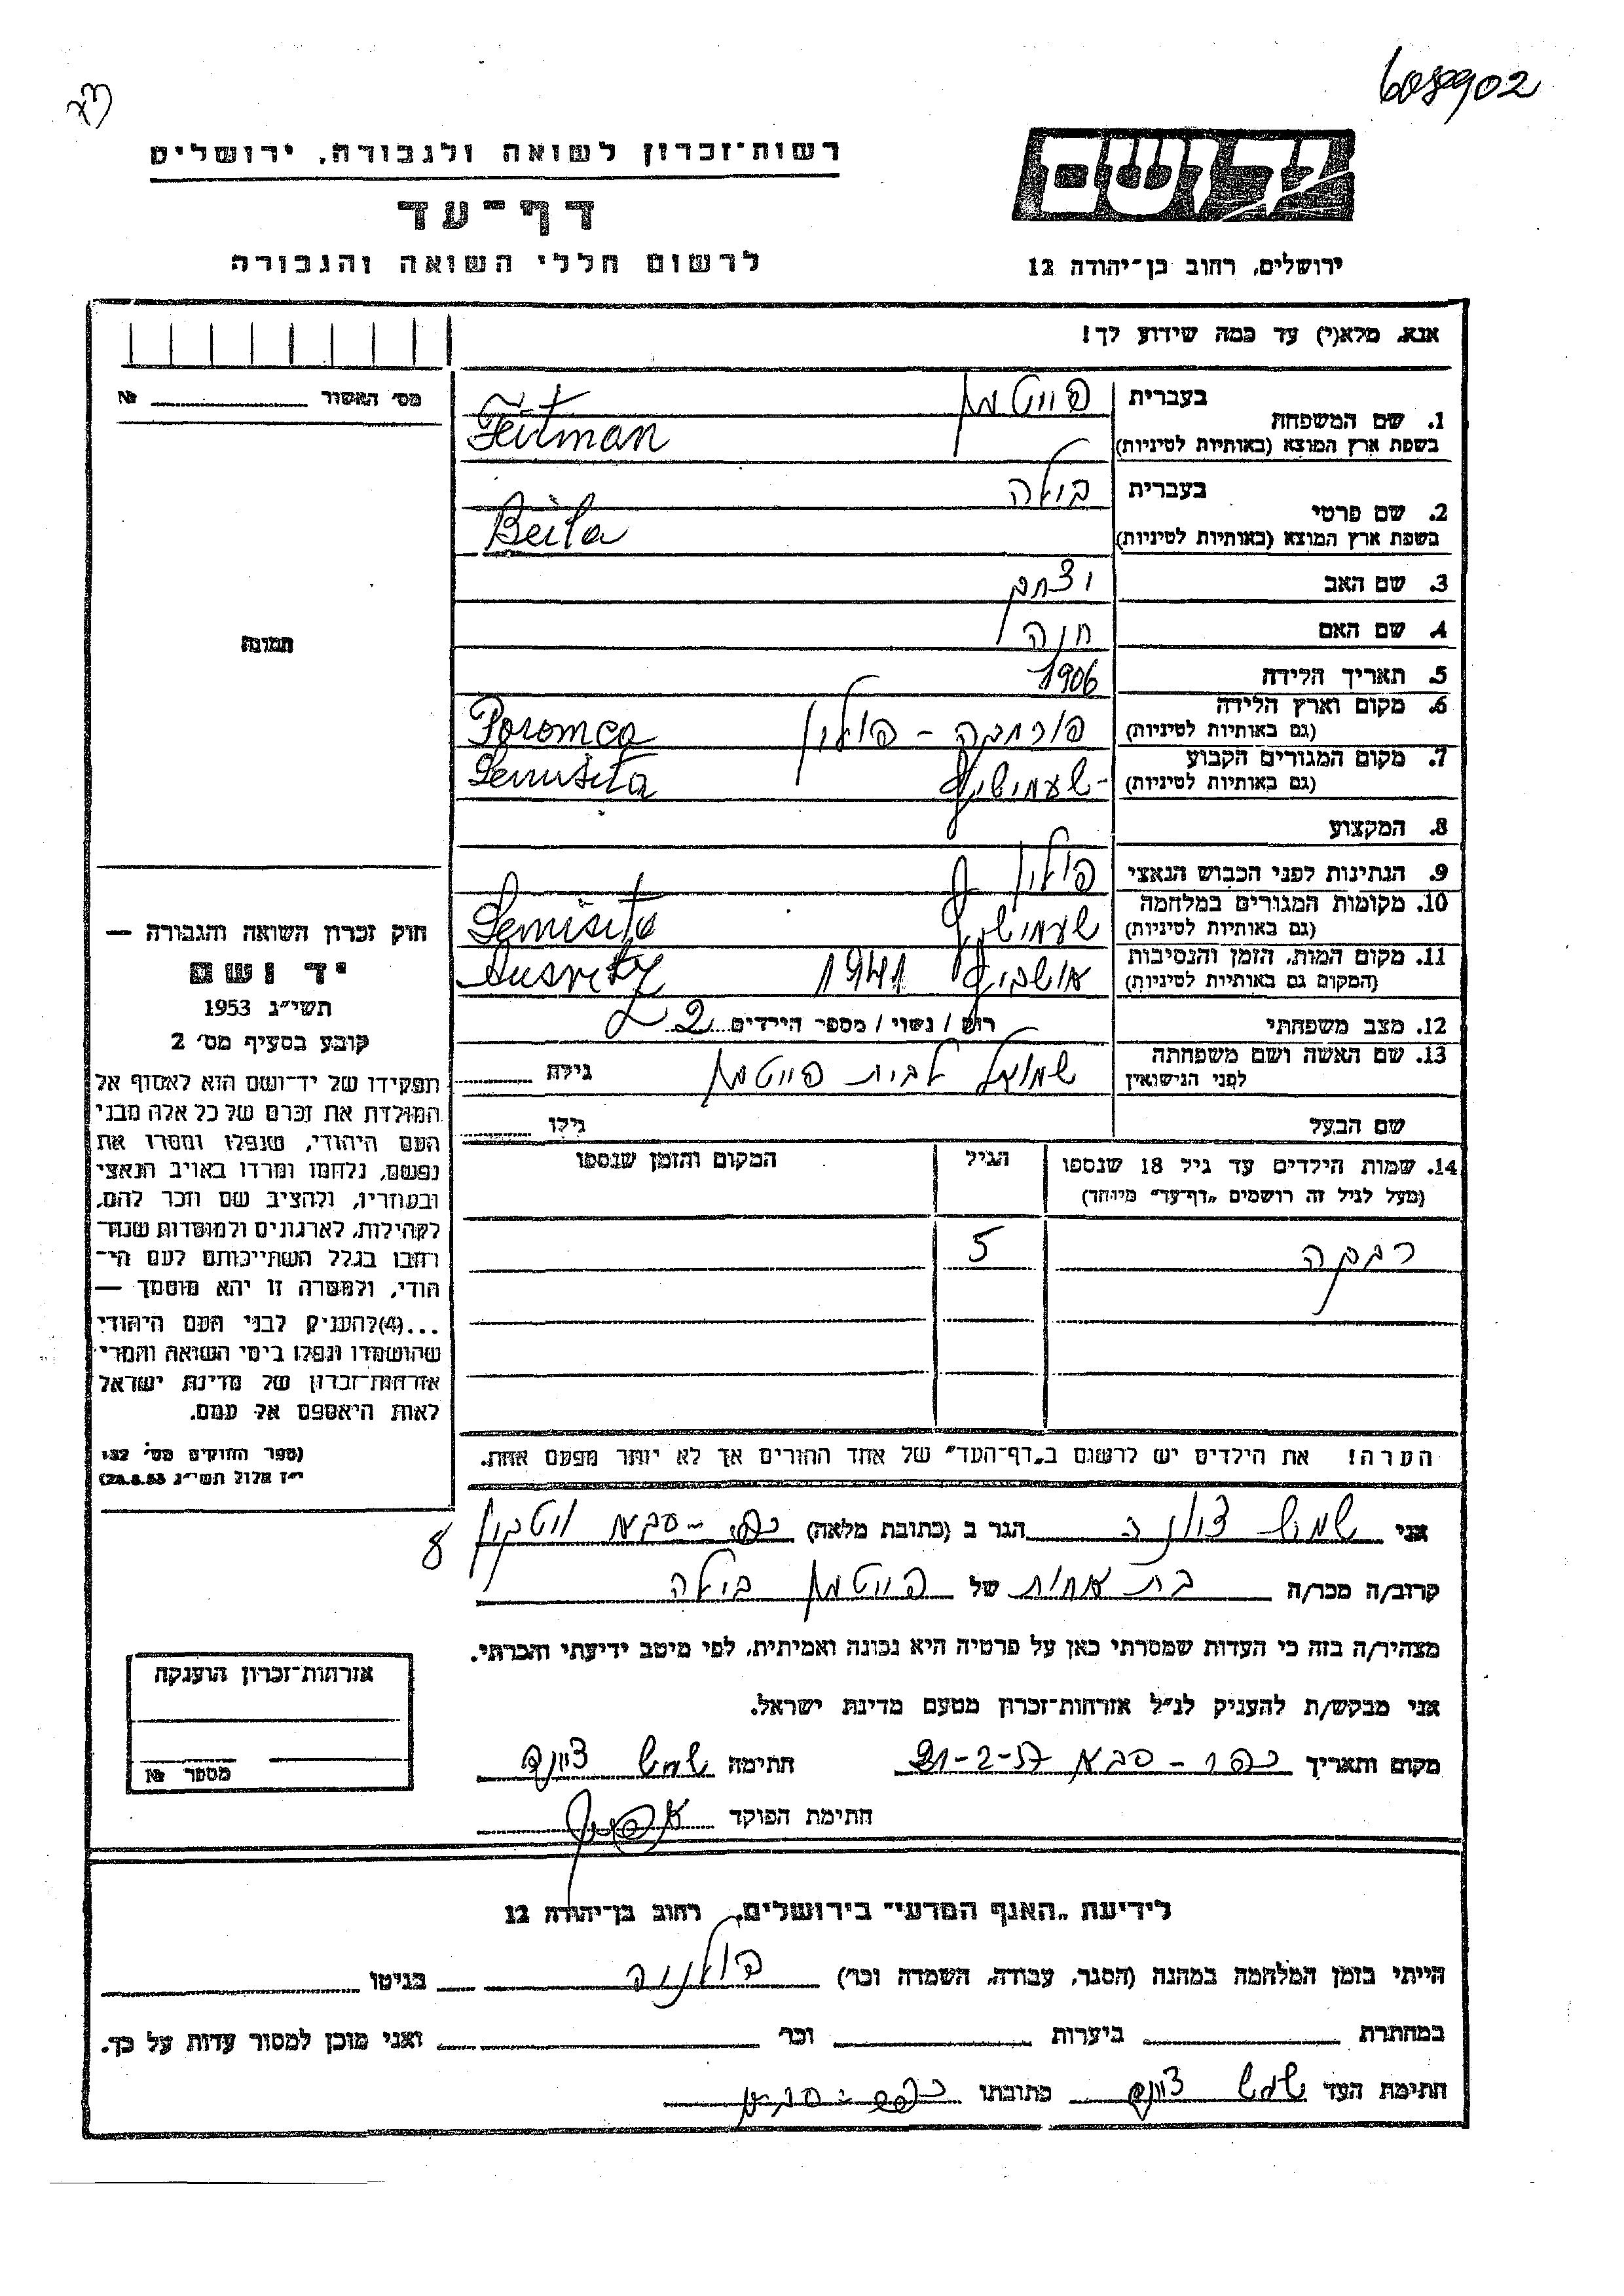 608902
רשות־זכרון לשואה ולגבורה, ירושלים
ידושם
דף־עד
לרשום חללי השואה והגבורה
ירושלים, רחוב בן־יהודה 12
אנא, מלא(י) עד כמה שידוע לך!
מס׳ האשור № 
1. שם המשפחה בעברית פייטמן
בשפת ארץ המוצא (באותיות לטיניות) Feitman
2. שם פרטי בעברית בילה
בשפת ארץ המוצא (באותיות לטיניות) Beila
3. שם האב יצחק
4. שם האם חנה
תמונה
5. תאריך הלידה 1906
6. מקום וארץ הלידה פורמבקה - פולין
(גם באותיות לטיניות)
7. מקום המגורים הקבוע
(גם באותיות לטיניות)
8. המקצוע
9. הנתינות לפני הכבוש הנאצי פולין
10. מקומות המגורים במלחמה
(גם באותיות לטיניות)
11. מקום המות, הזמן והנסיבות 1941
(המקום גם באותיות לטיניות)
12. מצב משפחתי רוק / נשוי / מספר הילדים 2
13. שם האשה ושם משפחתה לפני הנישואין שמואל לבית פייטמן גילה
שם הבעל גילו
14. שמות הילדים עד גיל 18 שנספו הגיל המקום והזמן שנספו
(מעל לגיל זה רושמים „דף־עד” מיוחד)
רבקה 5
הערה! את הילדים יש לרשום ב„דף־העד” של אחד ההורים אך לא יותר מפעם אחת.
חוק זכרון השואה והגבורה —
יד ושם
תשי״ג 1953
קובע בסעיף מס׳ 2
תפקידו של יד־ושם הוא לאסוף אל
המולדת את זכרם של כל אלה מבני
העם היהודי, שנפלו ומסרו את
נפשם, נלחמו ומרדו באויב הנאצי
ובעוזריו, ולהציב שם וזכר להם,
לקהילות, לארגונים ולמוסדות שנח־
רחבו בגלל השתייכותם לעם הי־
הודי, ולמטרה זו יהא מוסמך —
...(4) להעניק לבני העם היהודי
שהושמדו ונפלו בימי השואה והמרי
אזרחות־זכרון של מדינת ישראל
לאות היאספם אל עמם.
(ספר החוקים מס׳ 132
י״ז אלול תשי״ג 28.8.53)
אני שמש ציונה הגר ב (כתובת מלאה) כפר-סבא 8
קרוב/ה מכר/ה בת אחות של פייטמן בילה
מצהיר/ה בזה כי העדות שמסרתי כאן על פרטיה היא נכונה ואמיתית, לפי מיטב ידיעתי והכרתי.
אני מבקש/ת להעניק לנ״ל אזרחות־זכרון מטעם מדינת ישראל.
מקום ותאריך כפר-סבא 21-2-57 חתימה שמש ציונה
חתימת הפוקד
אזרחות־זכרון הוענקה
מספר №
לידיעת „האגף המדעי” בירושלים, רחוב בן־יהודה 12
הייתי בזמן המלחמה במחנה (הסגר, עבודה, השמדה וכו׳) בגיטו
במחתרת ביערות וכו׳ ואני מוכן למסור עדות על כך.
חתימת העד שמש ציונה כתובתו כפר-סבא